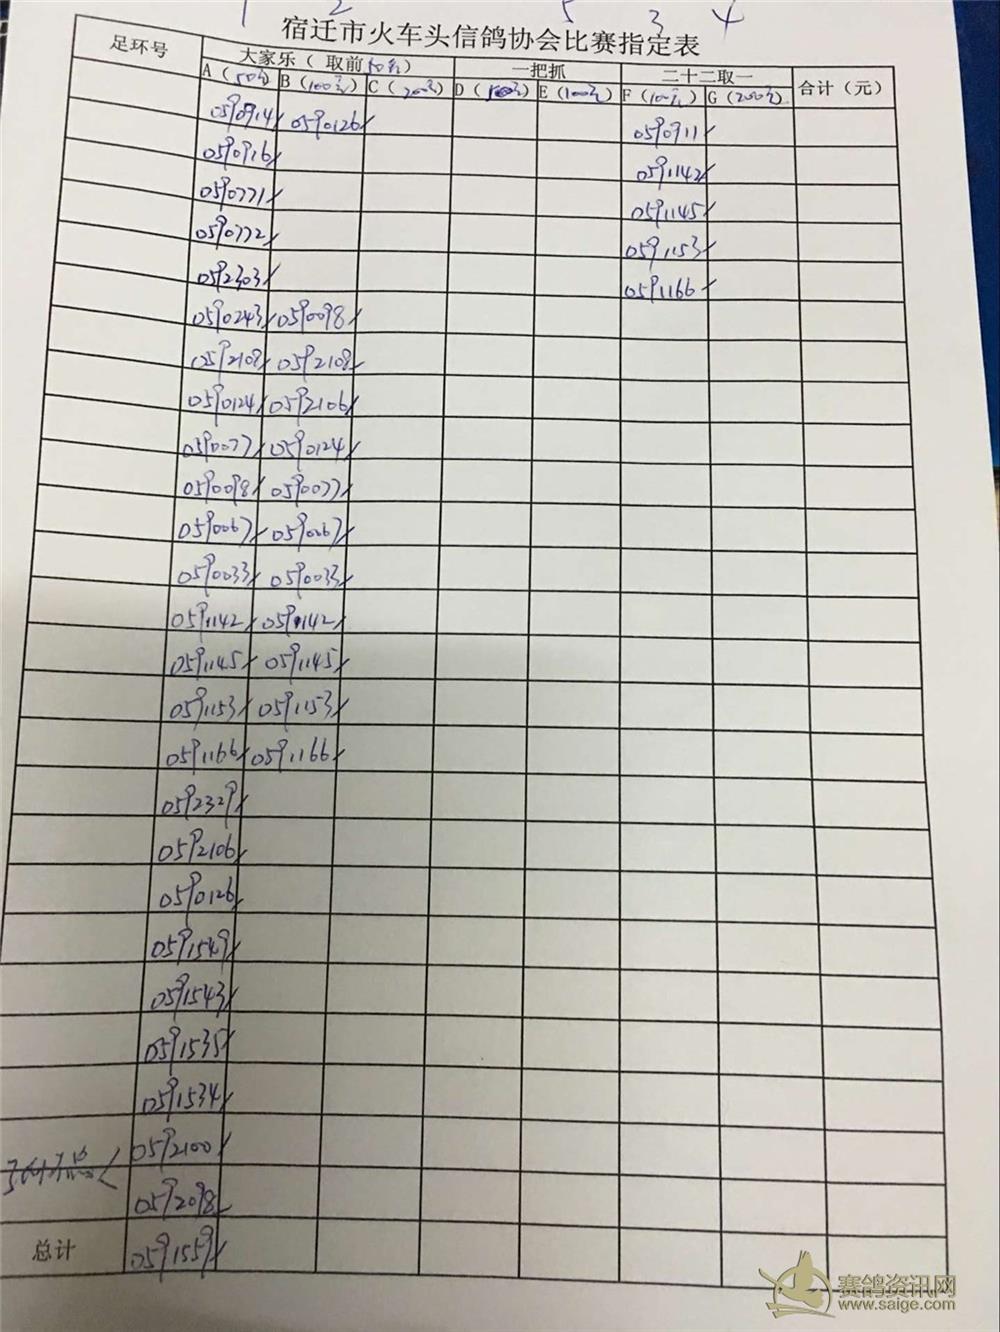 1 2 5 3 4
宿迁市火车头信鸽协会比赛指定表
足环号 大家乐（取前10名） 一把抓 二十二取一 合计（元）
A（50元） B（100元） C（200元） D（100元） E（100元） F（100元） G（200元）
0590914 0590126 0590911
0590916 0591142
0590771 0591145
0590772 0591153
0592303 0591166
0590243 0590098
0592108 0592108
0590124 0592106
0590077 0590124
0590098 0590077
0590067 0590067
0590033 0590033
0591142 0591142
0591145 0591145
0591153 0591153
0591166 0591166
0592329
0592106
0590126
0591549
0591543
0591535
0591534
0592100
0592098
总计 0591559
赛鸽资讯网
www.saige.com